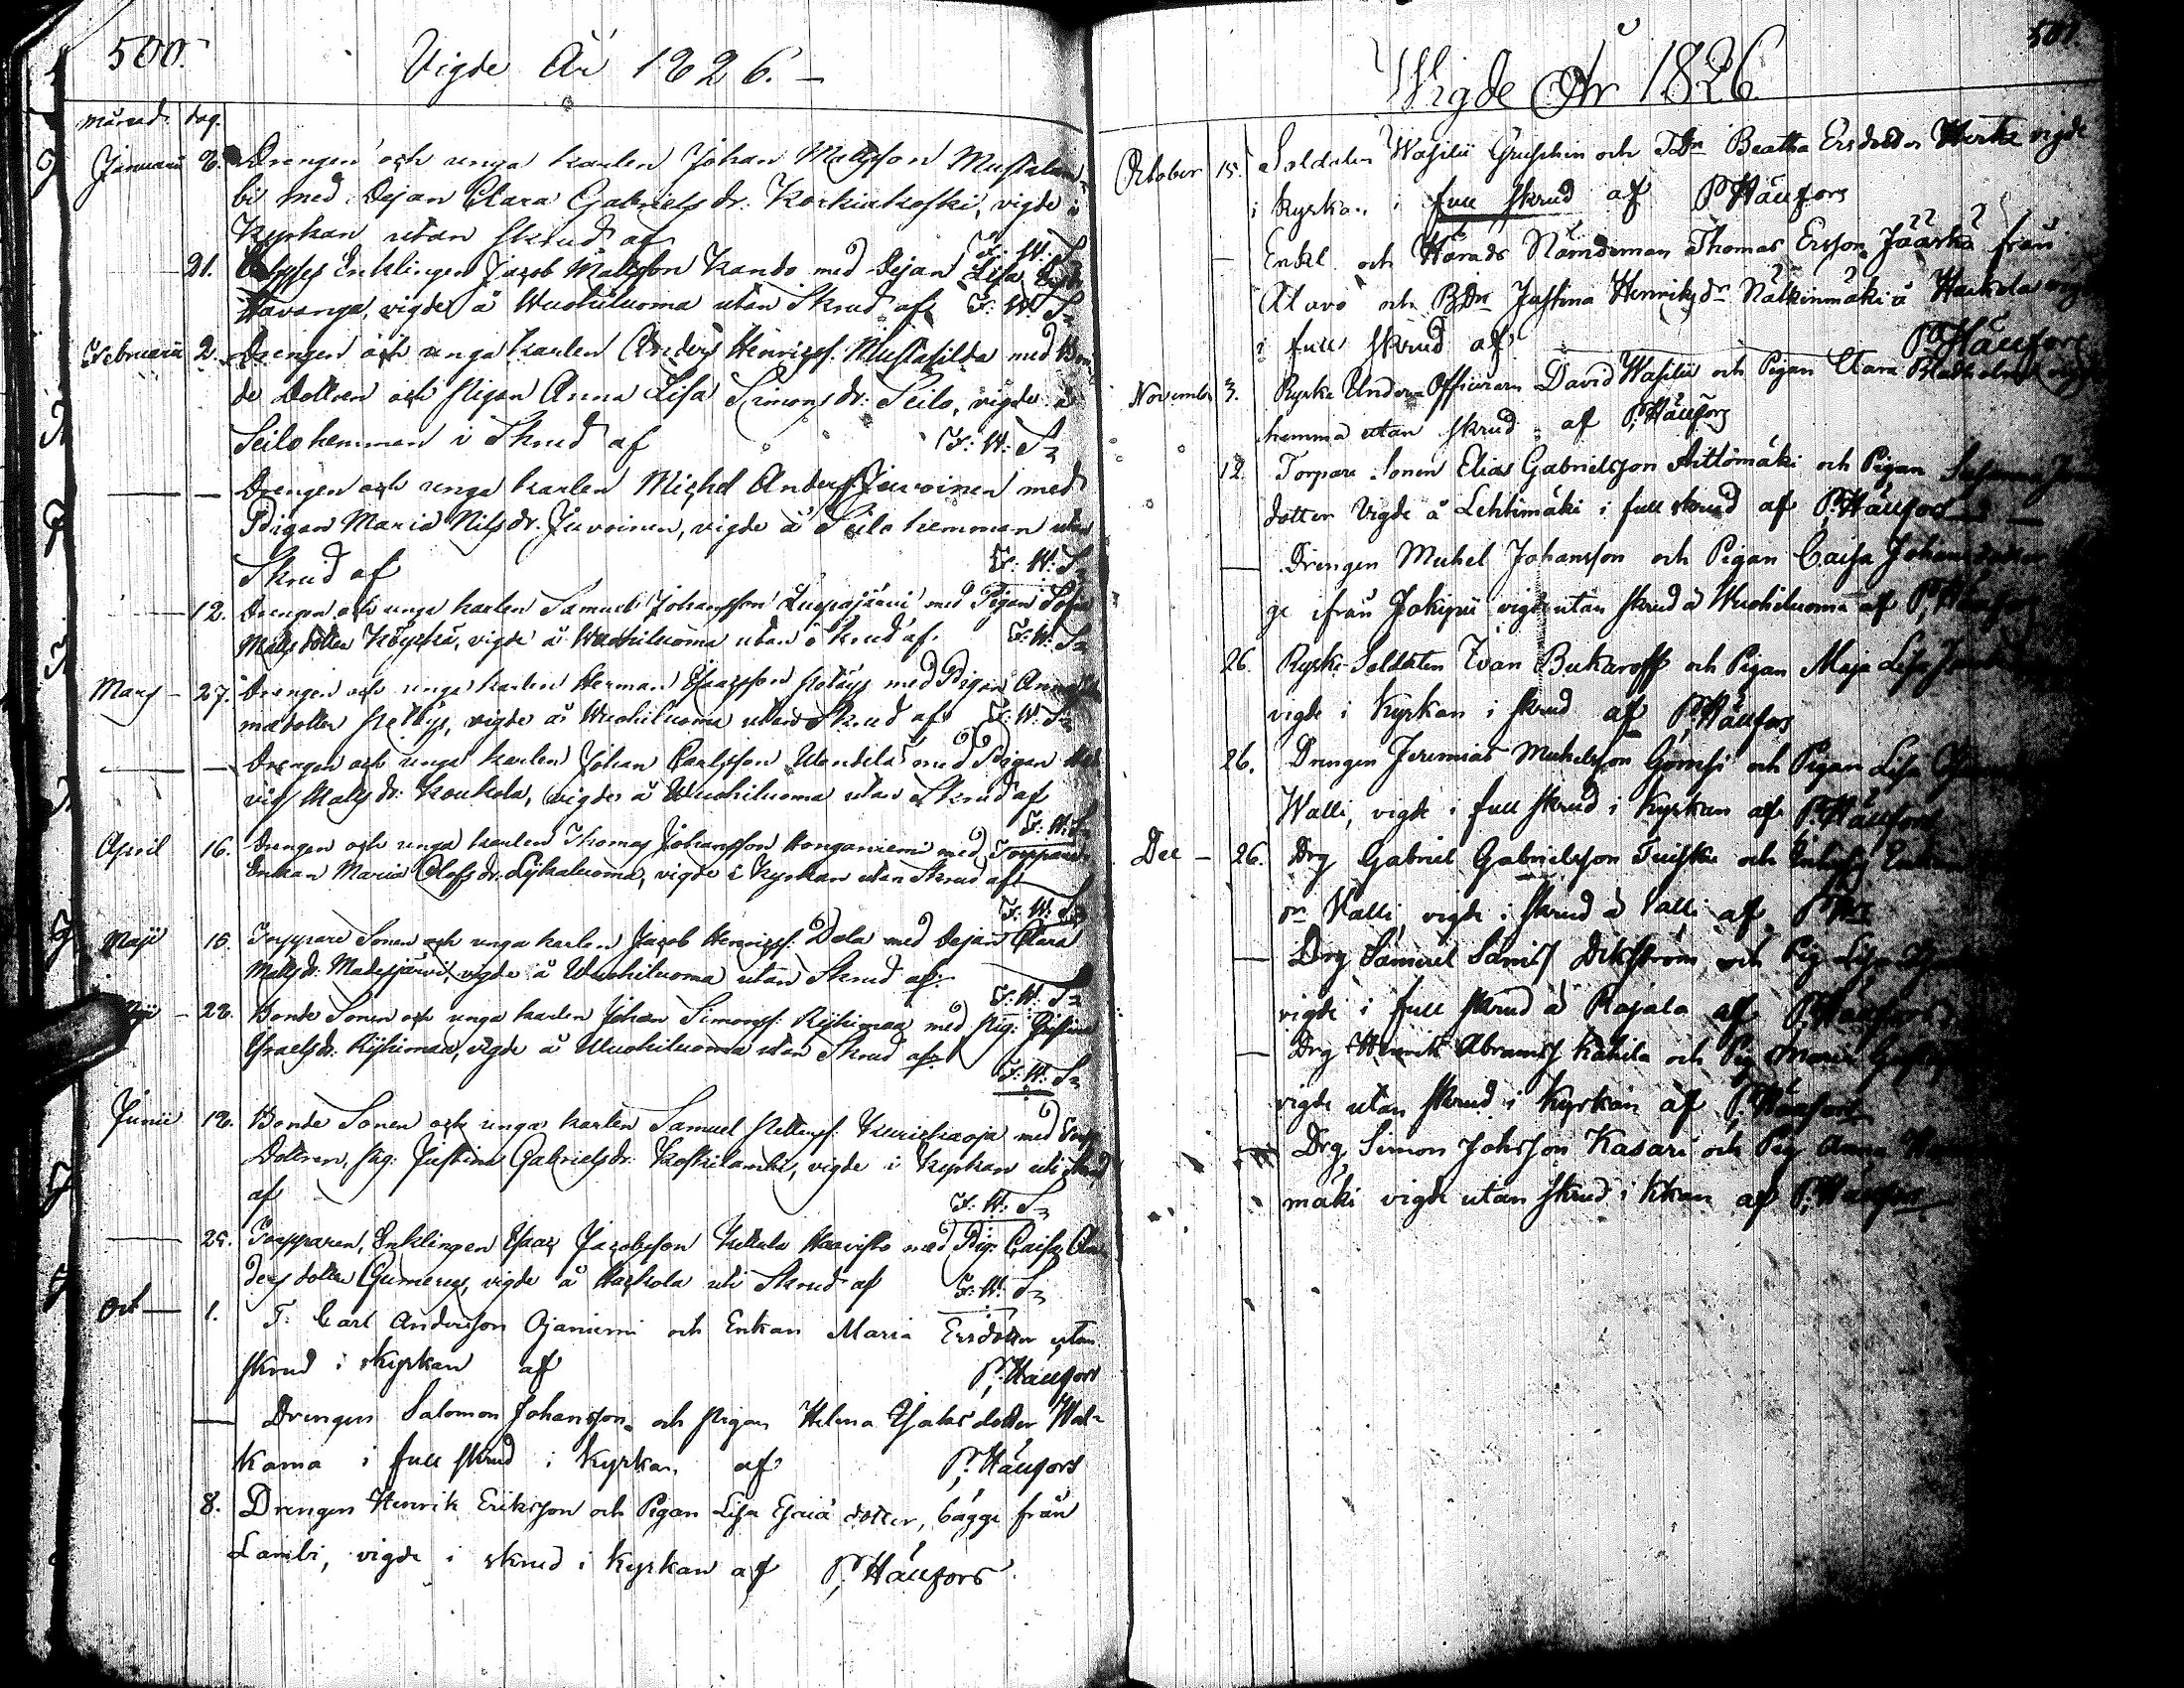 500.
Vigde År 1826. —
Månad. dag.
Januarii 6. Drengen och unga karlen Johan Mattsson Mustalam-
bi med Pijan Clara Gabrielsdr. Korkiakoski, vigde i
Kyrkan utan Skrud af
F: W: S
21. Enklingen Jacob Mattsson Kando med Pijan Lisa
Havanga, vigde å Wuohiluoma utan Skrud af F: W: S
Februarii 2. Drengen och unga karlen Anders Henricss. Mustasilda med Bon-
de Dottren och Pigan Anna Lisa Simonsdr. Seilo, vigde å
Seilo hemman i Skrud af F: W: S
— — Drengen och unga karlen Michel Anderss. Juvoinen med
Pigan Maria Nilsdr. Juvoinen, vigde å Seilo hemman utan
Skrud af F: W: S
— 12. Drengen och unga karlen Samuel Johansson Luopajärvi med Pigan Sofia
Mattsdotter Köykkä, vigde å Wuohiluoma utan Skrud af. F: W: S
Mars — 27. Drengen och unga karlen Herman Esaasson med Pigan
madotter vigde å Wuohiluoma utan Skrud af F: W: S
— — Drengen och unga karlen Johan Carlsson Mondila med Pigan Hed
vig Mattsdr. Koukola, vigde å Wuohiluoma utan Skrud af
F: W: S
April 16. Drengen och unga karlen Thomas Johansson Honganiemi med Torppare
Enkan Maria Olofsdr. Lykaluoma, vigde i Kyrkan utan Skrud af
F: W: S
Maji 15. Torppare Sonen och unga karlen Jacob Henricss. Dola med Pejan Clara
Mattsdr. Madesjärvi, vigde å Wuohiluoma utan Skrud af.
F: W: S
— 28. Bonde Sonen och unga karlen Johan Simonss. Rijhimaa med Pig: Justina
Israelsdr. Rijhimaa, vigde å Wuohiluoma utan Skrud af.
F: W: S
Junii 18. Bonde Sonen och unga karlen Samuel Kurickaoja med
Dottren, Pig: Justina Gabrielsdr. Koskilambi, vigde i Kyrkan uti Skrud
af F: W: S
— 25. Torpparen, Enklingen Esaas Jacobsson Kellala Harvisto med Pig: Caisa An
dersdotter Gumerus, vigde å Harkola uti Skrud af F: W: S
Oct — 1. T. Carl Andersson Ojaniemi och Enkan Maria Ersdotter utan
skrud i Kyrkan af P. Hällfors
— Drengen Salomon Johansson och Pigan Helena Esaiasdotter Wal-
kama i full skrud i Kyrkan af P. Hällfors
8. Drengen Henrik Eriksson och Pigan Lisa Esaiä dotter, bägge från
Lambi, vigde i skrud i Kyrkan af P. Hällfors
501.
Wigde År 1826
October 15. Soldaten Wasilii Gruschin och Beatha Ersdotter vigde
i Kyrkan i full skrud af P. Hällfors
— Enkl. och Härads Nämdeman Thomas Ersson Jäärkä från
Alavo och Justina Henriksdr Nälkinmäki å Harkola
i full skrud af P. Hällfors
November 3. Ryske Under Officeren David Wasilii och Pigan Clara
hemma utan skrud af P. Hällfors
12. Torpare Sonen Elias Gabrielsson Aittomäki och Pigan Susanna
dotter vigde å Lehtimäki i full skrud af P. Hällfors
— Drengen Mickel Johansson och Pigan Caisa Johansdotter
ge ifrån Jokipii vigde utan skrud å Wuohiluoma af P. Hällfors
26. Ryske Soldaten Ivan Bukaroff och Pigan Maja Lisa
vigde i Kyrkan i skrud af P. Hällfors
26. Drengen Jeremias Mickelsson Gömsi och Pigan Lisa
Walli, vigde i full skrud i Kyrkan af P. Hällfors
Dec — 26. Drg Gabriel Gabrielsson Tuiska och
Walli, vigde i skrud å Valli af
— Drg Samuel Dikström och Pig Lisa
vigde i full skrud å Rajala af P. Hällfors
— Drg Henrik Abramss Kahila och Pig Maria
vigde utan skrud i Kyrkan af P. Hällfors
— Drg Simon Johsson Kasari och Pig Anna
mäki vigde utan skrud i Kkan af P. Hällfors